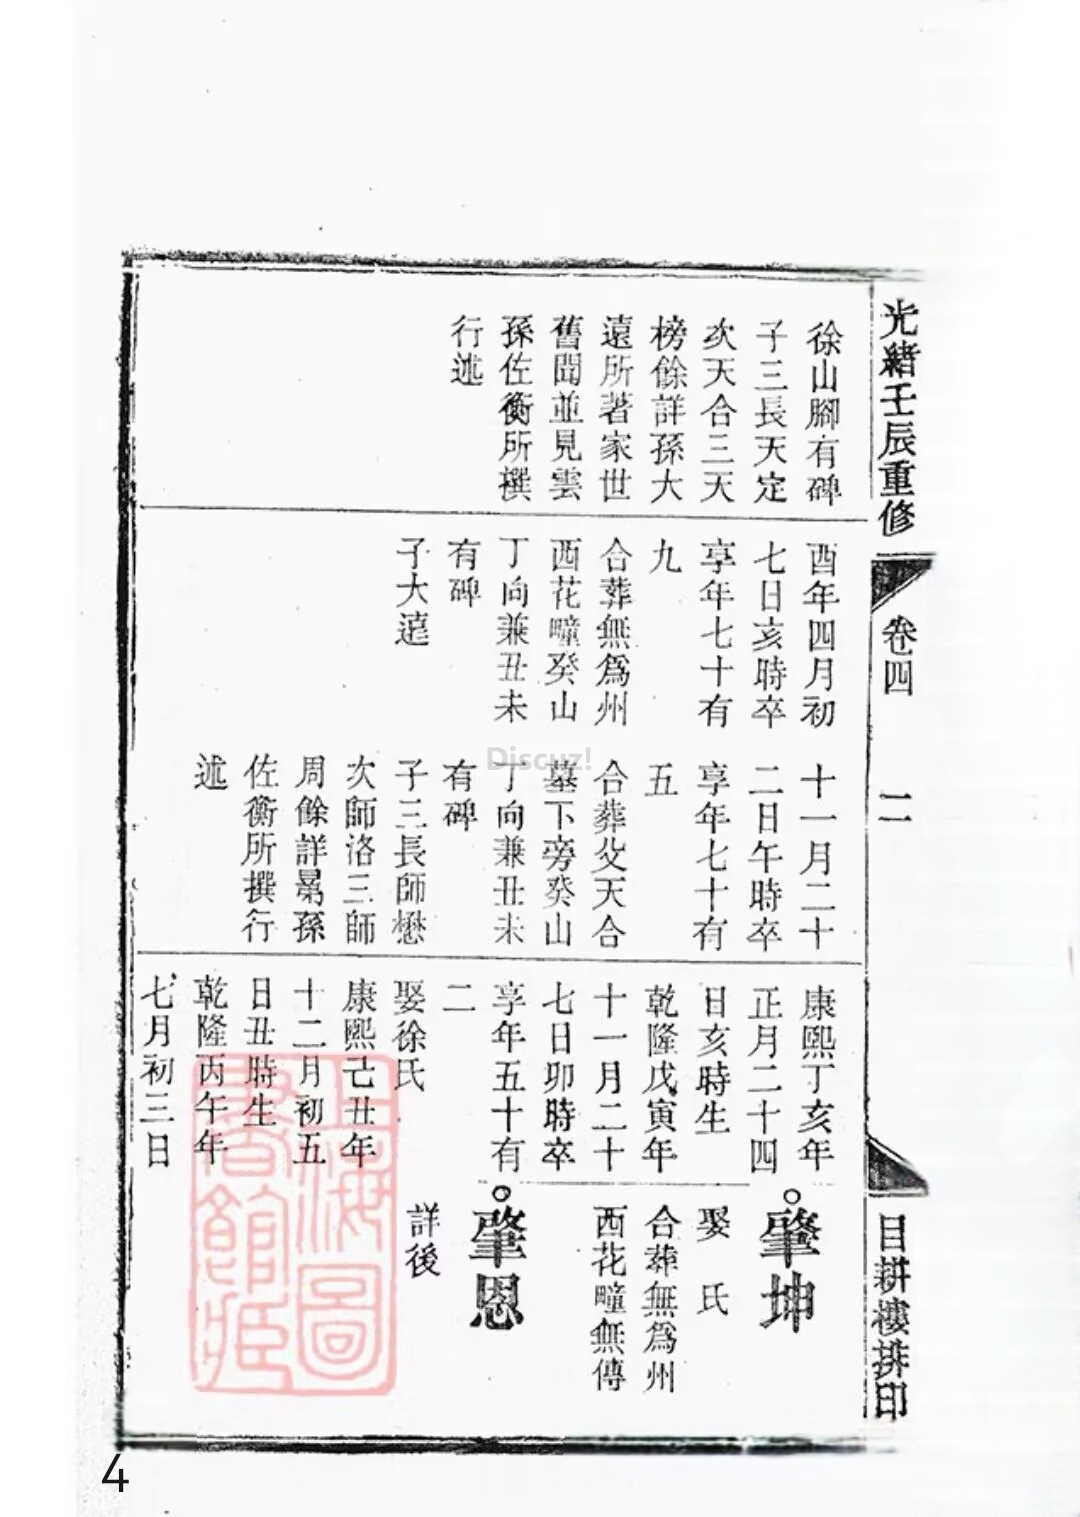 光緒壬辰重修
卷四
二
目耕樓排印
徐山腳有碑
子三長天定
次天合三天
榜餘詳孫大
遠所著家世
舊聞並見雲
孫佐衡所撰
行述
酉年四月初
七日亥時卒
享年七十有
九
合葬無為州
西花疃癸山
丁向兼丑未
有碑
子大遠
十一月二十
二日午時卒
享年七十有
五
合葬父天合
墓下旁癸山
丁向兼丑未
有碑
子三長師懋
次師洛三師
周餘詳曇孫
佐衡所撰行
述
康熙丁亥年
正月二十四
日亥時生
乾隆戊寅年
十一月二十
七日卯時卒
享年五十有
二
娶徐氏
康熙己丑年
十二月初五
日丑時生
乾隆丙午年
七月初三日
肇坤
娶 氏
合葬無為州
西花疃無傳
肇恩
詳後
上海圖
書館藏
Discuz!
4